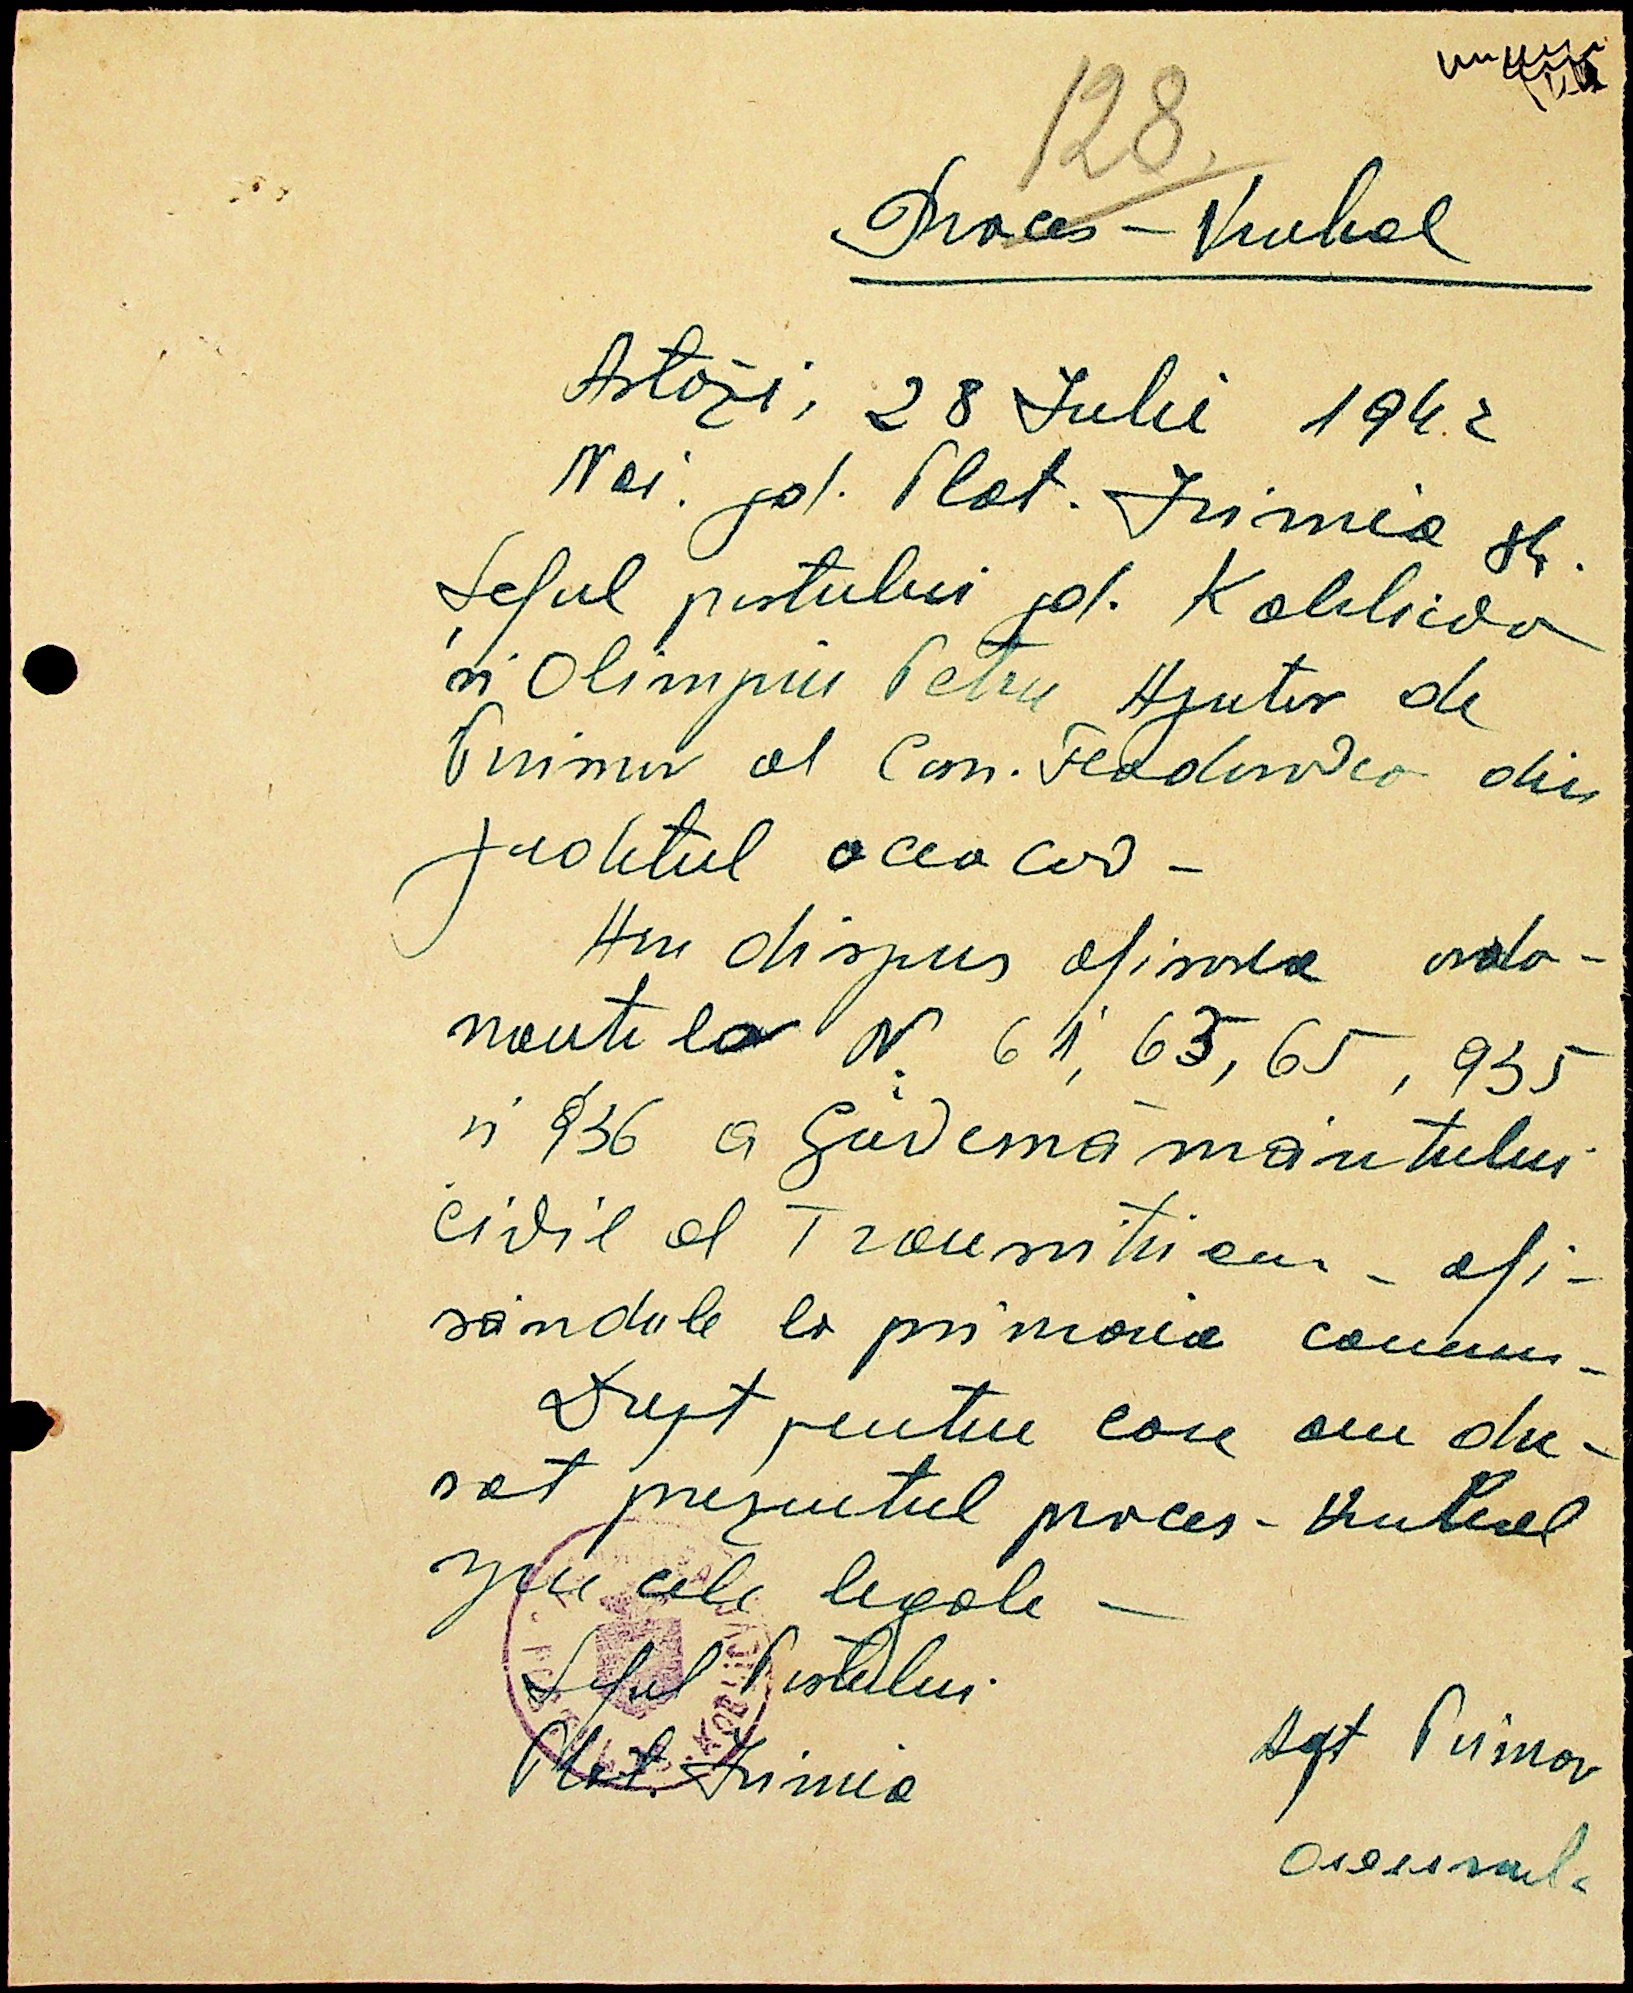 128.
Proces-Verbal
Astăzi, 28 Iulie 1942
Noi. jd. Plot. Irimia St.
Șeful postului jd. Kobliewa
și Olimpiu Petru Ajutor de
Primar al Com. Feodorovca din
judetul oceacov -
Am dispus afisarea ordo-
nantelor Nr. 61, 63, 65, 935
si 936 a Guvernămăntului
civil al Transnitriei - afi-
săndule la primăria comunei -
Drept pentru care am dre-
sat prezentul proces-verbal
spre cele legale -
Șeful Postului
Plot. Irimia
Agt Primar